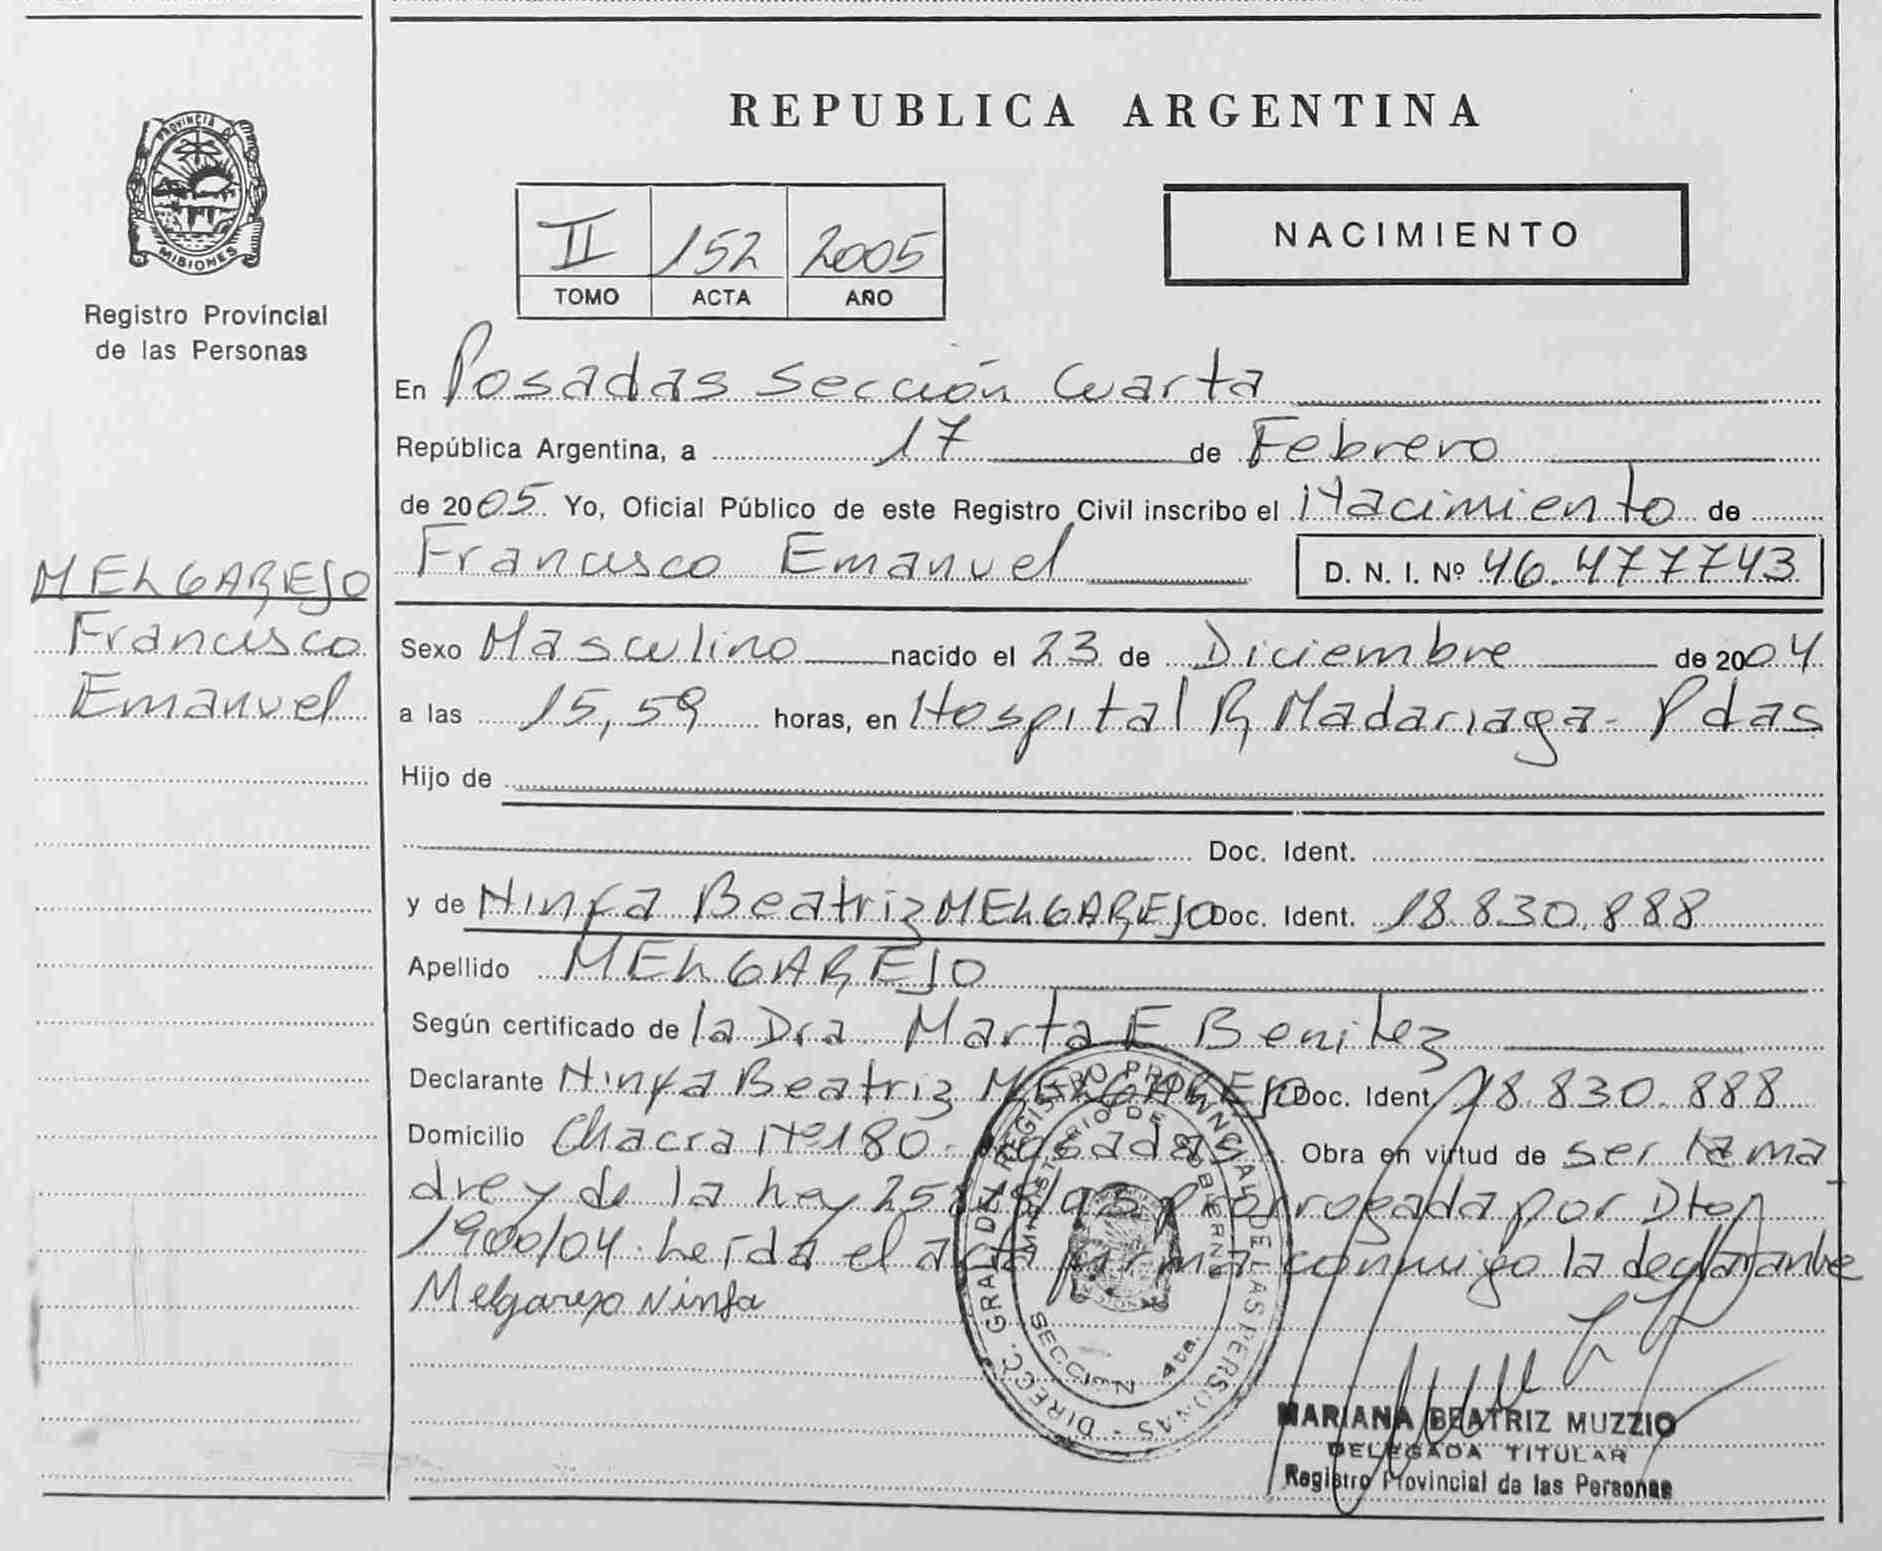 PROVINCIA DE
MISIONES
Registro Provincial
de las Personas
MELGAREJO
Francisco
Emanuel
REPUBLICA ARGENTINA
II 152 2005
TOMO ACTA AÑO
NACIMIENTO
En Posadas Sección Cuarta
República Argentina, a 17 de Febrero
de 2005 Yo, Oficial Público de este Registro Civil inscribo el Nacimiento de
Francisco Emanuel D. N. I. Nº 46.477743
Sexo Masculino nacido el 23 de Diciembre de 2004
a las 15,59 horas, en Hospital R. Madariaga - Pdas
Hijo de
Doc. Ident.
y de Ninfa Beatriz MELGAREJO Doc. Ident. 18.830.888
Apellido MELGAREJO
Según certificado de la Dra. Marta E Benitez
Declarante Ninfa Beatriz MELGAREJO Doc. Ident. 18.830.888
Domicilio Chacra Nº 180 - Posadas Obra en virtud de ser la ma
dre y de la Ley prorrogada por Dto
1900/04. Leída el acta firma conmigo la declarante
Melgarejo Ninfa
DIRECC. GRAL. DEL REGISTRO PROVINCIAL DE LAS PERSONAS
MINISTERIO DE GOBIERNO
SECCION 4ta.
MARIANA BEATRIZ MUZZIO
DELEGADA TITULAR
Registro Provincial de las Personas